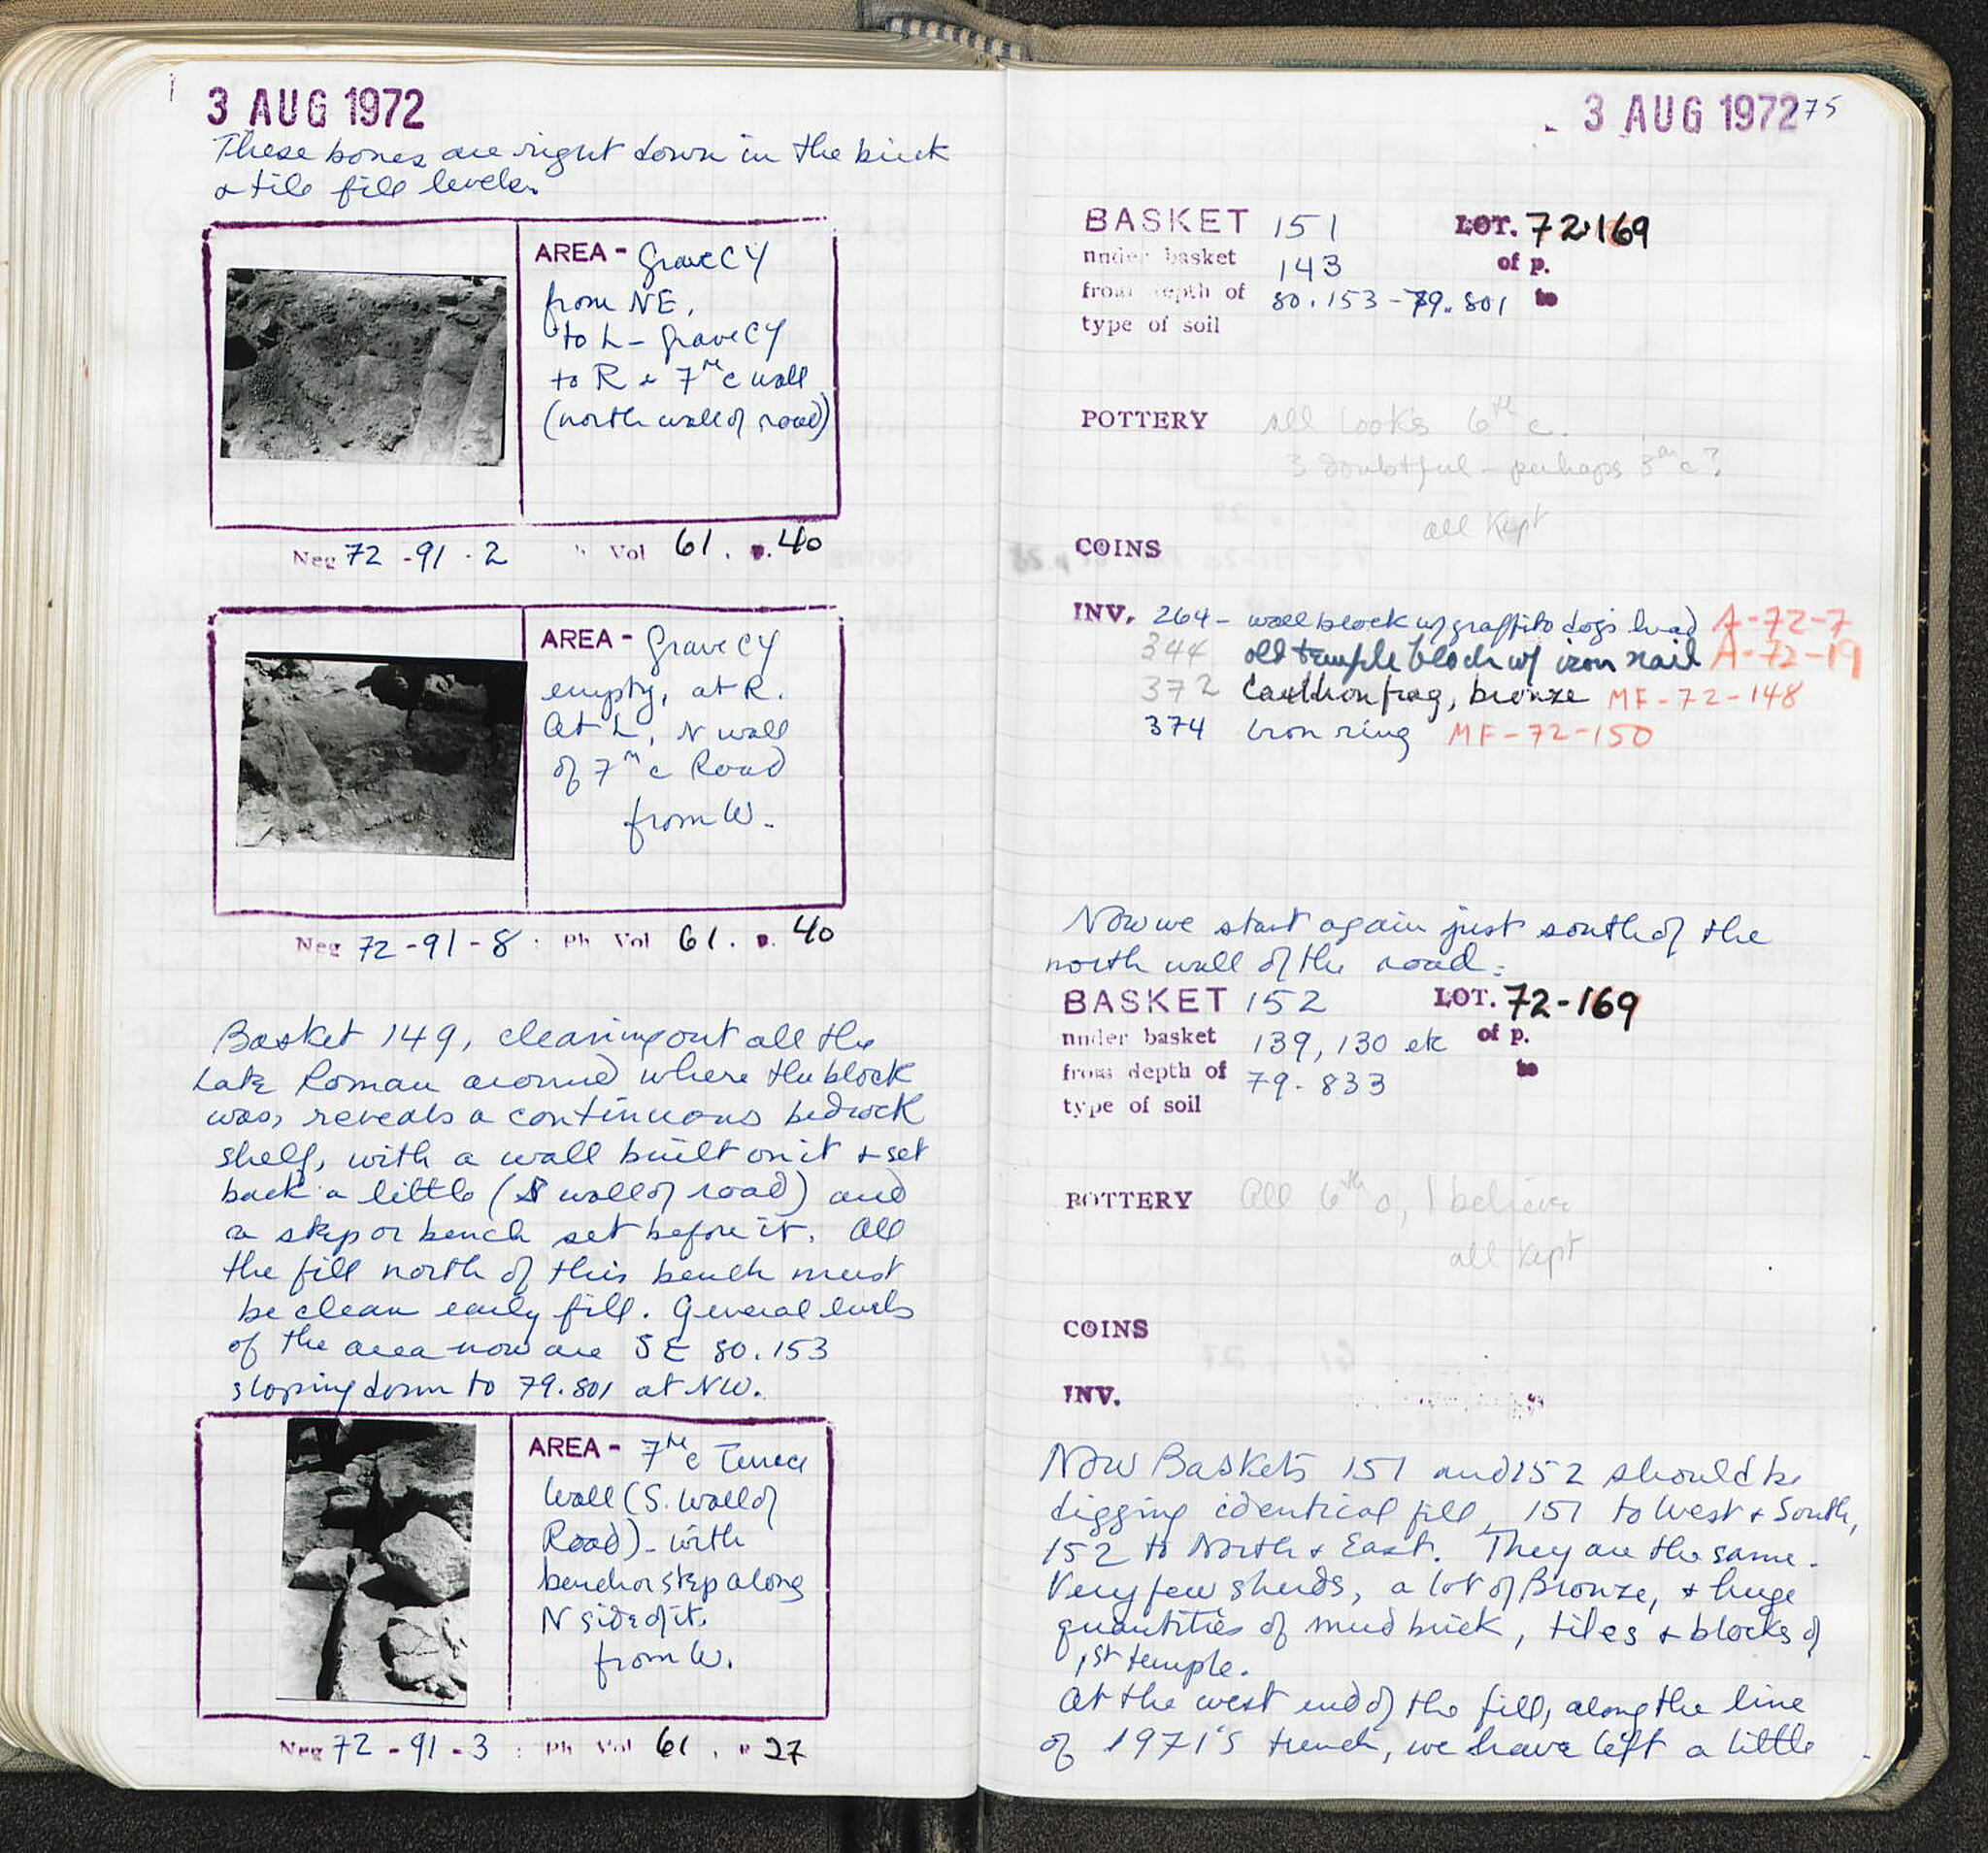 3 AUG 1972
These bones are right down in the brick
& tile fill levels.
AREA - Grave CY
from NE,
to L - Grave CY
to R = 7th c wall
(north wall of road)
Neg 72 - 91 - 2 Vol 61. p. 40
AREA - Grave CY
empty, at R.
At L, N wall
of 7th c Road
from W.
Neg 72 - 91 - 8 : Ph Vol 61. p. 40
Basket 149, cleaning out all the
Late Roman around where the block
was, reveals a continuous bedrock
shelf, with a wall built on it & set
back a little (S wall of road) and
a step or bench set before it. All
the fill north of this bench must
be clean early fill. General levels
of the area now are SE 80.153
sloping down to 79.801 at NW.
AREA - 7th c Terrace
Wall (S. Wall of
Road) - with
bench or step along
N side of it.
from W.
Neg 72 - 91 - 3 : Ph Vol 61. p 27
3 AUG 1972 75
BASKET 151 LOT. 72-169
under basket 143 of p.
from depth of 80.153 - 79.801 to
type of soil
POTTERY all looks 6th c.
3 doubtful - perhaps 3rd c?
all kept
COINS
INV. 264 - wall block w/ graffito dog's head A-72-7
344 old temple block w/ iron nail A-72-19
372 Cauldron frag, bronze MF-72-148
374 Iron ring MF-72-150
Now we start again just south of the
north wall of the road:
BASKET 152 LOT. 72-169
under basket 139, 130 etc of p.
from depth of 79.833 to
type of soil
POTTERY All 6th c, I believe
all kept
COINS
INV.
Now Baskets 151 and 152 should be
digging identical fill, 151 to West & South,
152 to North & East. They are the same.
Very few sherds, a lot of Bronze, & huge
quantities of mud brick, tiles & blocks of
1st temple.
At the west end of the fill, along the line
of 1971's trench, we have left a little